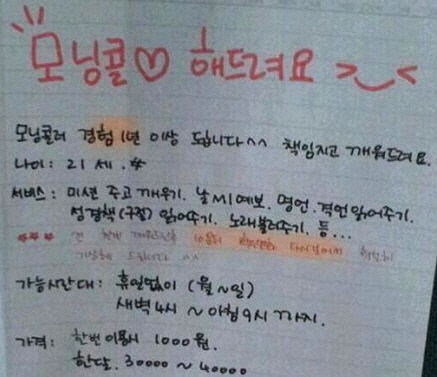 모닝콜♡ 해드려요 >‿<
모닝콜러 경험 1년 이상 됩니다^^ 책임지고 깨워드려요.
나이: 21 세.
서비스: 미션 주고 깨우기. 날씨예보. 명언. 격언읽어주기.
성경책(구절) 읽어주기. 노래불러주기. 등...
한번 10분
드립니다 ^^
가능시간대: 휴일없이 (월~일)
새벽4시 ~ 아침9시 까지.
가격: 한번 이용시 1000원.
한달. 30000 ~ 40000